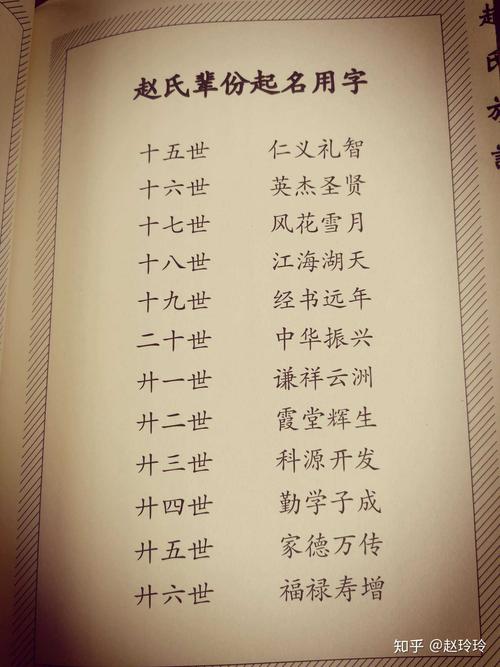 赵氏辈份起名用字
十五世 仁义礼智
十六世 英杰圣贤
十七世 风花雪月
十八世 江海湖天
十九世 经书远年
二十世 中华振兴
廾一世 谦祥云洲
廾二世 霞堂辉生
廾三世 科源开发
廾四世 勤学子成
廾五世 家德万传
廾六世 福禄寿增
赵氏族谱
知乎 @赵玲玲